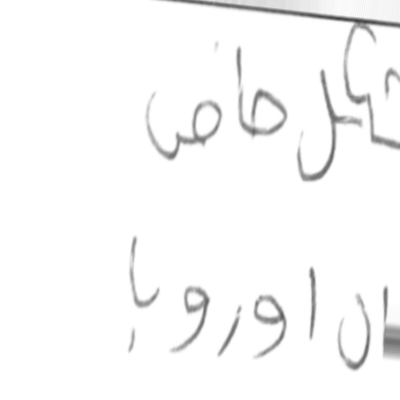 شكل خاص
ان اوروبا